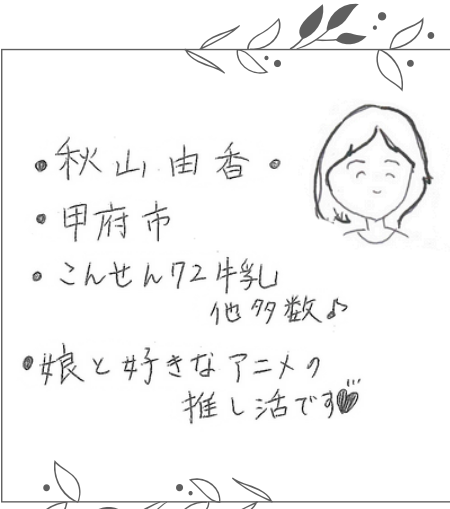 • 秋山由香 •
• 甲府市
• こんせん72牛乳
他多数♪
• 娘と好きなアニメの
推し活です♥